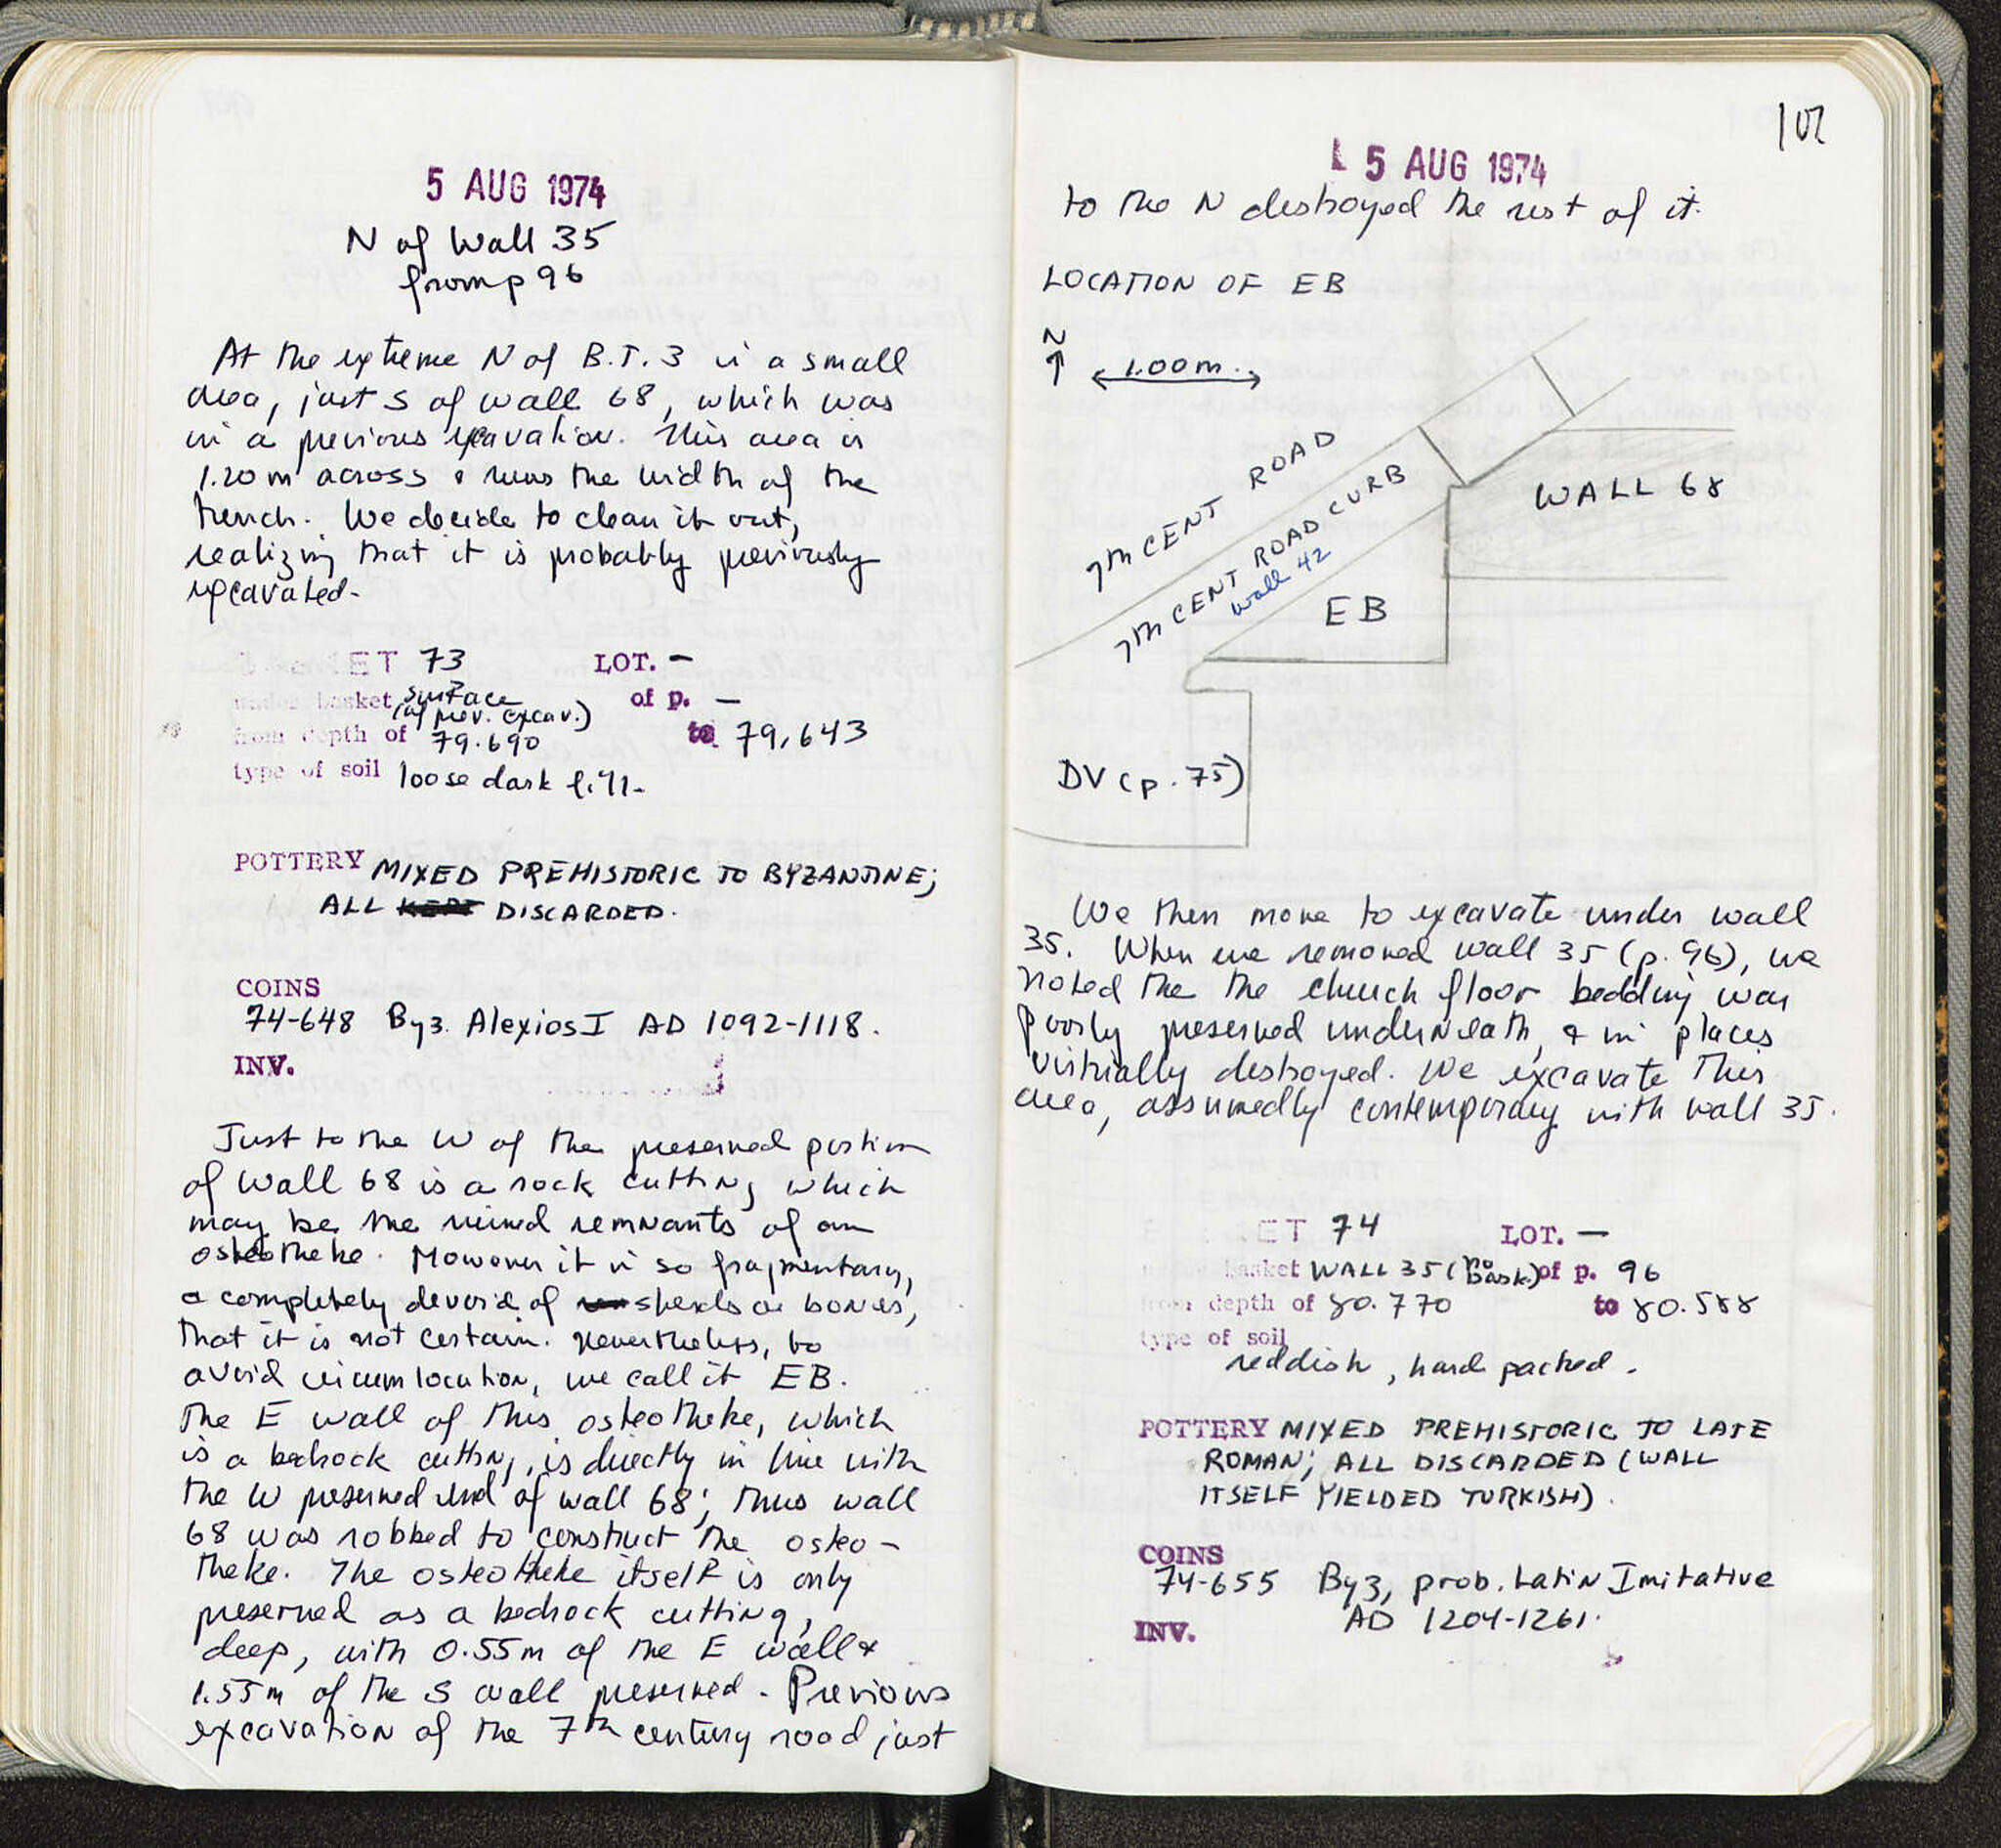 5 AUG 1974
N of Wall 35
from p 96
At the extreme N of B.T. 3 is a small
area, just S of wall 68, which was
in a previous excavation. This area is
1.20 m across & runs the width of the
trench. We decide to clean it out,
realizing that it is probably previously
excavated.
BASKET 73 LOT. -
under basket surface (of prev. excav.) of p. -
from depth of 79.690 to 79.643
type of soil loose dark fill.
POTTERY MIXED PREHISTORIC TO BYZANTINE;
ALL KEPT DISCARDED.
COINS
74-648 Byz. Alexios I AD 1092-1118.
INV.
Just to the W of the preserved portion
of Wall 68 is a rock cutting which
may be the ruined remnants of an
osteotheke. However it is so fragmentary,
& completely devoid of sherds or bones,
that it is not certain. Nevertheless, to
avoid circumlocution, we call it EB.
The E wall of this osteotheke, which
is a bedrock cutting, is directly in line with
the W preserved end of wall 68; thus wall
68 was robbed to construct the osteo-
theke. The osteotheke itself is only
preserved as a bedrock cutting,
deep, with 0.55m of the E wall &
1.55m of the S wall preserved. Previous
excavation of the 7th century road just
102
5 AUG 1974
to the N destroyed the rest of it.
LOCATION OF EB
N
1.00m.
7th CENT ROAD
7th CENT ROAD CURB
wall 42
WALL 68
EB
DV (p. 75)
We then move to excavate under wall
35. When we removed wall 35 (p. 96), we
noted the the church floor bedding was
poorly preserved underneath, & in places
virtually destroyed. We excavate this
area, assumedly contemporary with wall 35.
BASKET 74 LOT. -
under basket WALL 35 (no bask.) of p. 96
from depth of 80.770 to 80.588
type of soil
reddish, hard packed.
POTTERY MIXED PREHISTORIC TO LATE
ROMAN; ALL DISCARDED (WALL
ITSELF YIELDED TURKISH).
COINS
74-655 Byz, prob. Latin Imitative
AD 1204-1261.
INV.